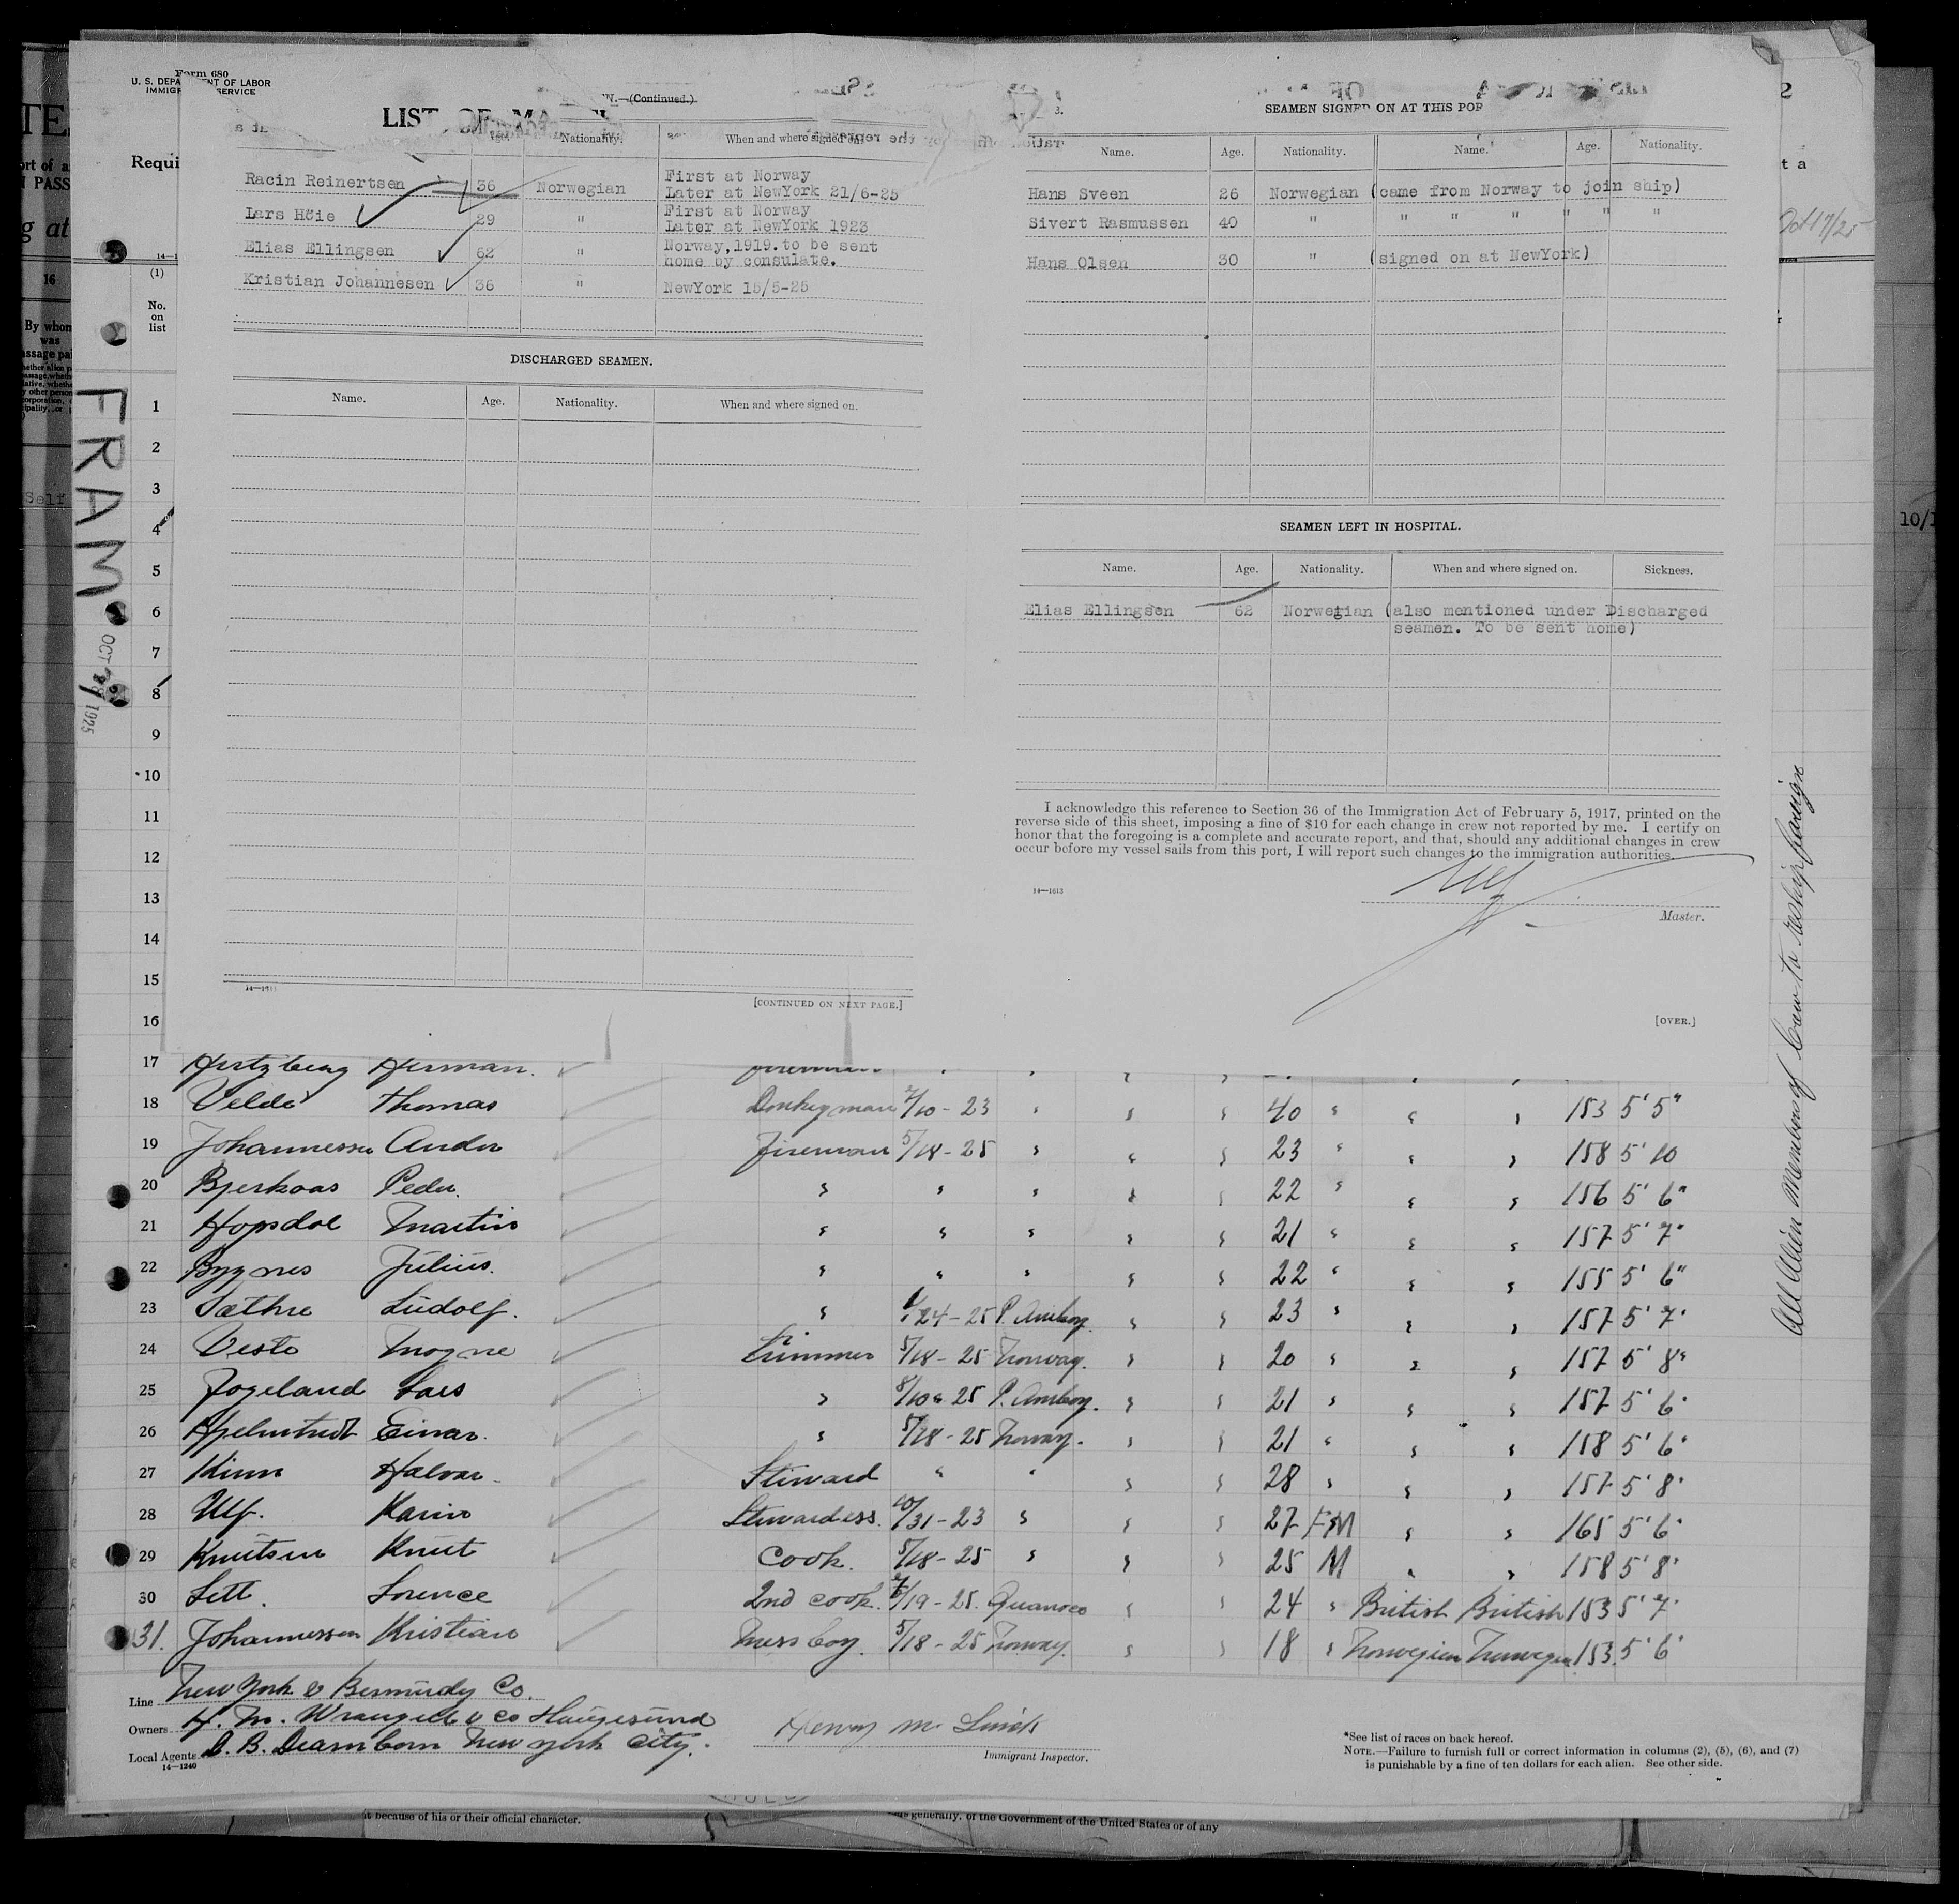 Form 680
U. S. DEPARTMENT OF LABOR
IMMIGRATION SERVICE
LIST OF
(Continued.)
Age. Nationality. When and where signed on.
Racin Reinertsen 36 Norwegian First at Norway
Later at NewYork 21/6-25
Lars Höie 29 " First at Norway
Later at NewYork 1923
Elias Ellingsen 62 " Norway, 1919. to be sent
home by consulate.
Kristian Johannesen 36 " NewYork 15/5-25
DISCHARGED SEAMEN.
Name. Age. Nationality. When and where signed on.
14—1613
[CONTINUED ON NEXT PAGE.]
3.
SEAMEN SIGNED ON AT THIS POR
Name. Age. Nationality. Name. Age. Nationality.
Hans Sveen 26 Norwegian (came from Norway to join ship)
Sivert Rasmussen 40 " " " " " " "
Hans Olsen 30 " (signed on at NewYork)
SEAMEN LEFT IN HOSPITAL.
Name. Age. Nationality. When and where signed on. Sickness.
Elias Ellingsen 62 Norwegian (also mentioned under Discharged
seamen. To be sent home)
I acknowledge this reference to Section 36 of the Immigration Act of February 5, 1917, printed on the
reverse side of this sheet, imposing a fine of $10 for each change in crew not reported by me. I certify on
honor that the foregoing is a complete and accurate report, and that, should any additional changes in crew
occur before my vessel sails from this port, I will report such changes to the immigration authorities.
14—1613
Master.
[OVER.]
Requi
(1)
No.
on
list
FRAM
OCT 1925
1
2
3
4
5
6
7
8
9
10
11
12
13
14
15
16
17 Hertzberg Herman. fireman
18 Velde Thomas Donkeyman 2/10-23 40 153 5'5"
19 Johannessen Ander fireman 5/18-25 23 158 5'10
20 Bjerkaas Peder. 22 156 5'6"
21 Hopsdal Martin 21 157 5'7"
22 Bygnes Julius. 22 155 5'6"
23 Sæthre Ludolf. /24-25 P. Amboy. 23 157 5'7"
24 Veste Mogne trimmer 5/18-25 Norway. 20 157 5'8"
25 Fogeland Lars 8/10-25 P. Amboy. 21 157 5'6"
26 Einar. 5/18-25 Norway. 21 158 5'6"
27 Kinn Halvar. Steward 28 157 5'8"
28 Ulf. Karin Stewardess. 10/31-23 27 165 5'6"
29 Knutsen Knut Cook. 5/18-25 25 M 158 5'8"
30 Lett. Lorence 2nd cook. /19-25. 24 British British 153 5'7"
31. Johannessen Kristian Mess boy. 5/18-25 Norway. 18 Norwegian Norwegian 153. 5'6"
Line New York & Bermudez Co.
Owners H. M. Wrangell & Co Haugesund
Local Agents D. B. Dearnborn New York City.
14—1240
Immigrant Inspector.
*See list of races on back hereof.
NOTE.—Failure to furnish full or correct information in columns (2), (5), (6), and (7)
is punishable by a fine of ten dollars for each alien. See other side.
All Alien Members of Crew to reship foreign
16
By whom
was
Self
10/1
t because of his or their official character.
generally, of the Government of the United States or of any